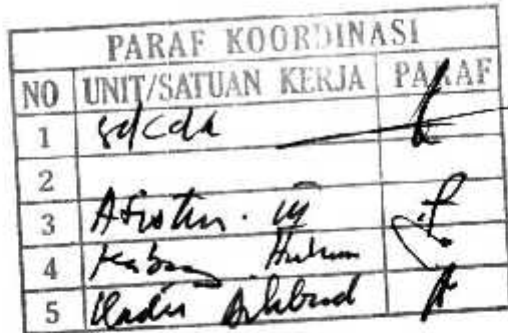 PARAF KOORDINASI
NO UNIT/SATUAN KERJA PARAF
1 Sekda
2
3 Asisten. III
4 Kabag Hukum
5 Kadis Dikbud